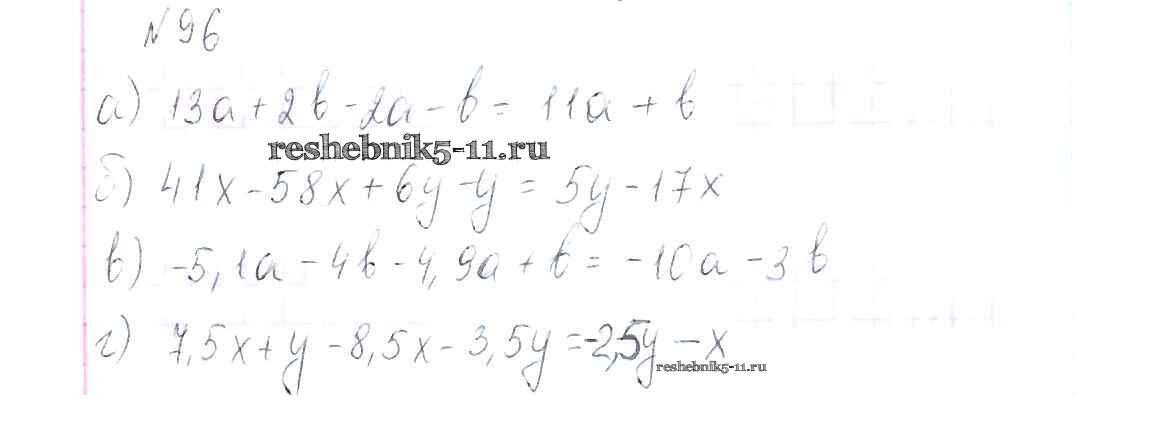 №96
а) 13a + 2b - 2a - b = 11a + b
reshebnik5-11.ru
б) 41x - 58x + 6y - y = 5y - 17x
в) -5,1a - 4b - 4,9a + b = -10a - 3b
г) 7,5x + y - 8,5x - 3,5y = -2,5y - x
reshebnik5-11.ru